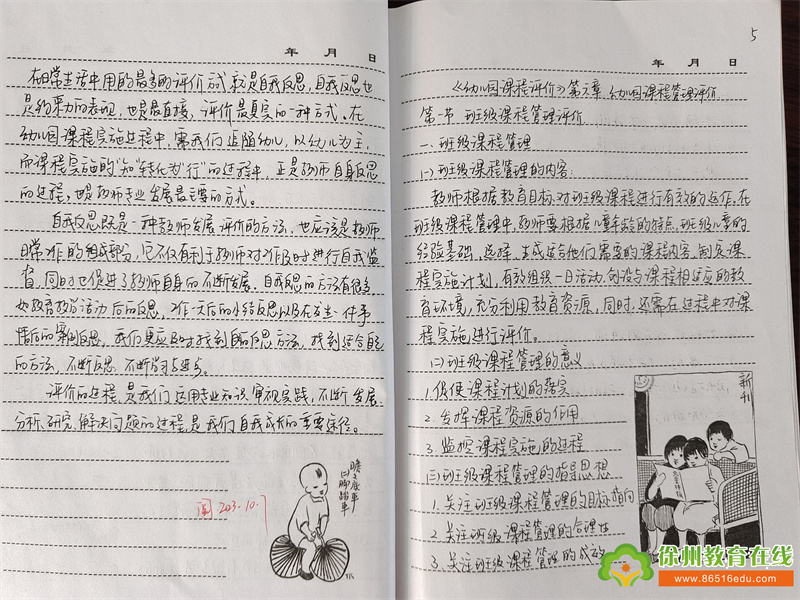 年 月 日
在日常生活中用的最多的评价方式就是自我反思,自我反思也
是约束力的表现,也是最直接,评价最真实的一种方式。在
幼儿园课程实施过程中,需我们追随幼儿,以幼儿为主,
而课程实施的"知"转化为"行"的过程中,正是教师自身反思
的过程,也是教师专业发展最主要的方式。
自我反思既是一种教师发展评价的方法,也应该是教师
日常工作的组成部分,它不仅有利于教师对工作及时进行自我监
督,同时也促进了教师自身的不断发展。自我反思的方法有很多
如教育教学活动后的反思,工作一天后的小结反思以及在发生一件事
情后的案例反思,我们更应及时找到自己的反思方法,找到适合自己
的方法,不断反思,不断学习与进步。
评价的过程,是我们运用专业知识审视实践,不断发展、
分析、研究、解决问题的过程,是我们自我成长的重要途径。
瞻瞻底车
(二)脚踏车
阅 203.10.7
5
年 月 日
《幼儿园课程评价》第六章 幼儿园课程管理评价
第一节 班级课程管理评价
一、班级课程管理
(一)班级课程管理的内容:
教师根据教育目标,对班级课程进行有效的运作,在
班级课程管理中,教师要根据儿童年龄的特点,班级儿童的
经验基础,选择、生成适合他们需要的课程内容,制定课
程实施计划,有效组织一日活动,创设与课程相适应的教
育环境,充分利用教育资源,同时,还需在过程中对课
程实施进行评价。
(二)班级课程管理的意义
1.促使课程计划的落实
2.发挥课程资源的作用
3.监控课程实施的过程
(三)班级课程管理的指导思想
1.关注班级课程管理的目标指向
2.关注班级课程管理的合理性
3.关注班级课程管理的成效
新刊
徐州教育在线
www.86516edu.com